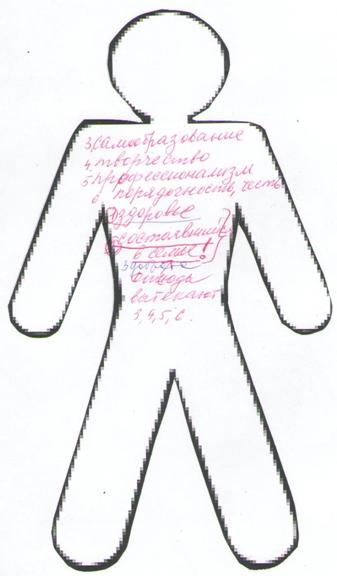 3. самообразование
4. творчество
5 профессионализм
6 порядочность, честь
① здоровье
② состоявшийся
в семье!
отсюда
вытекают
3, 4, 5, 6.